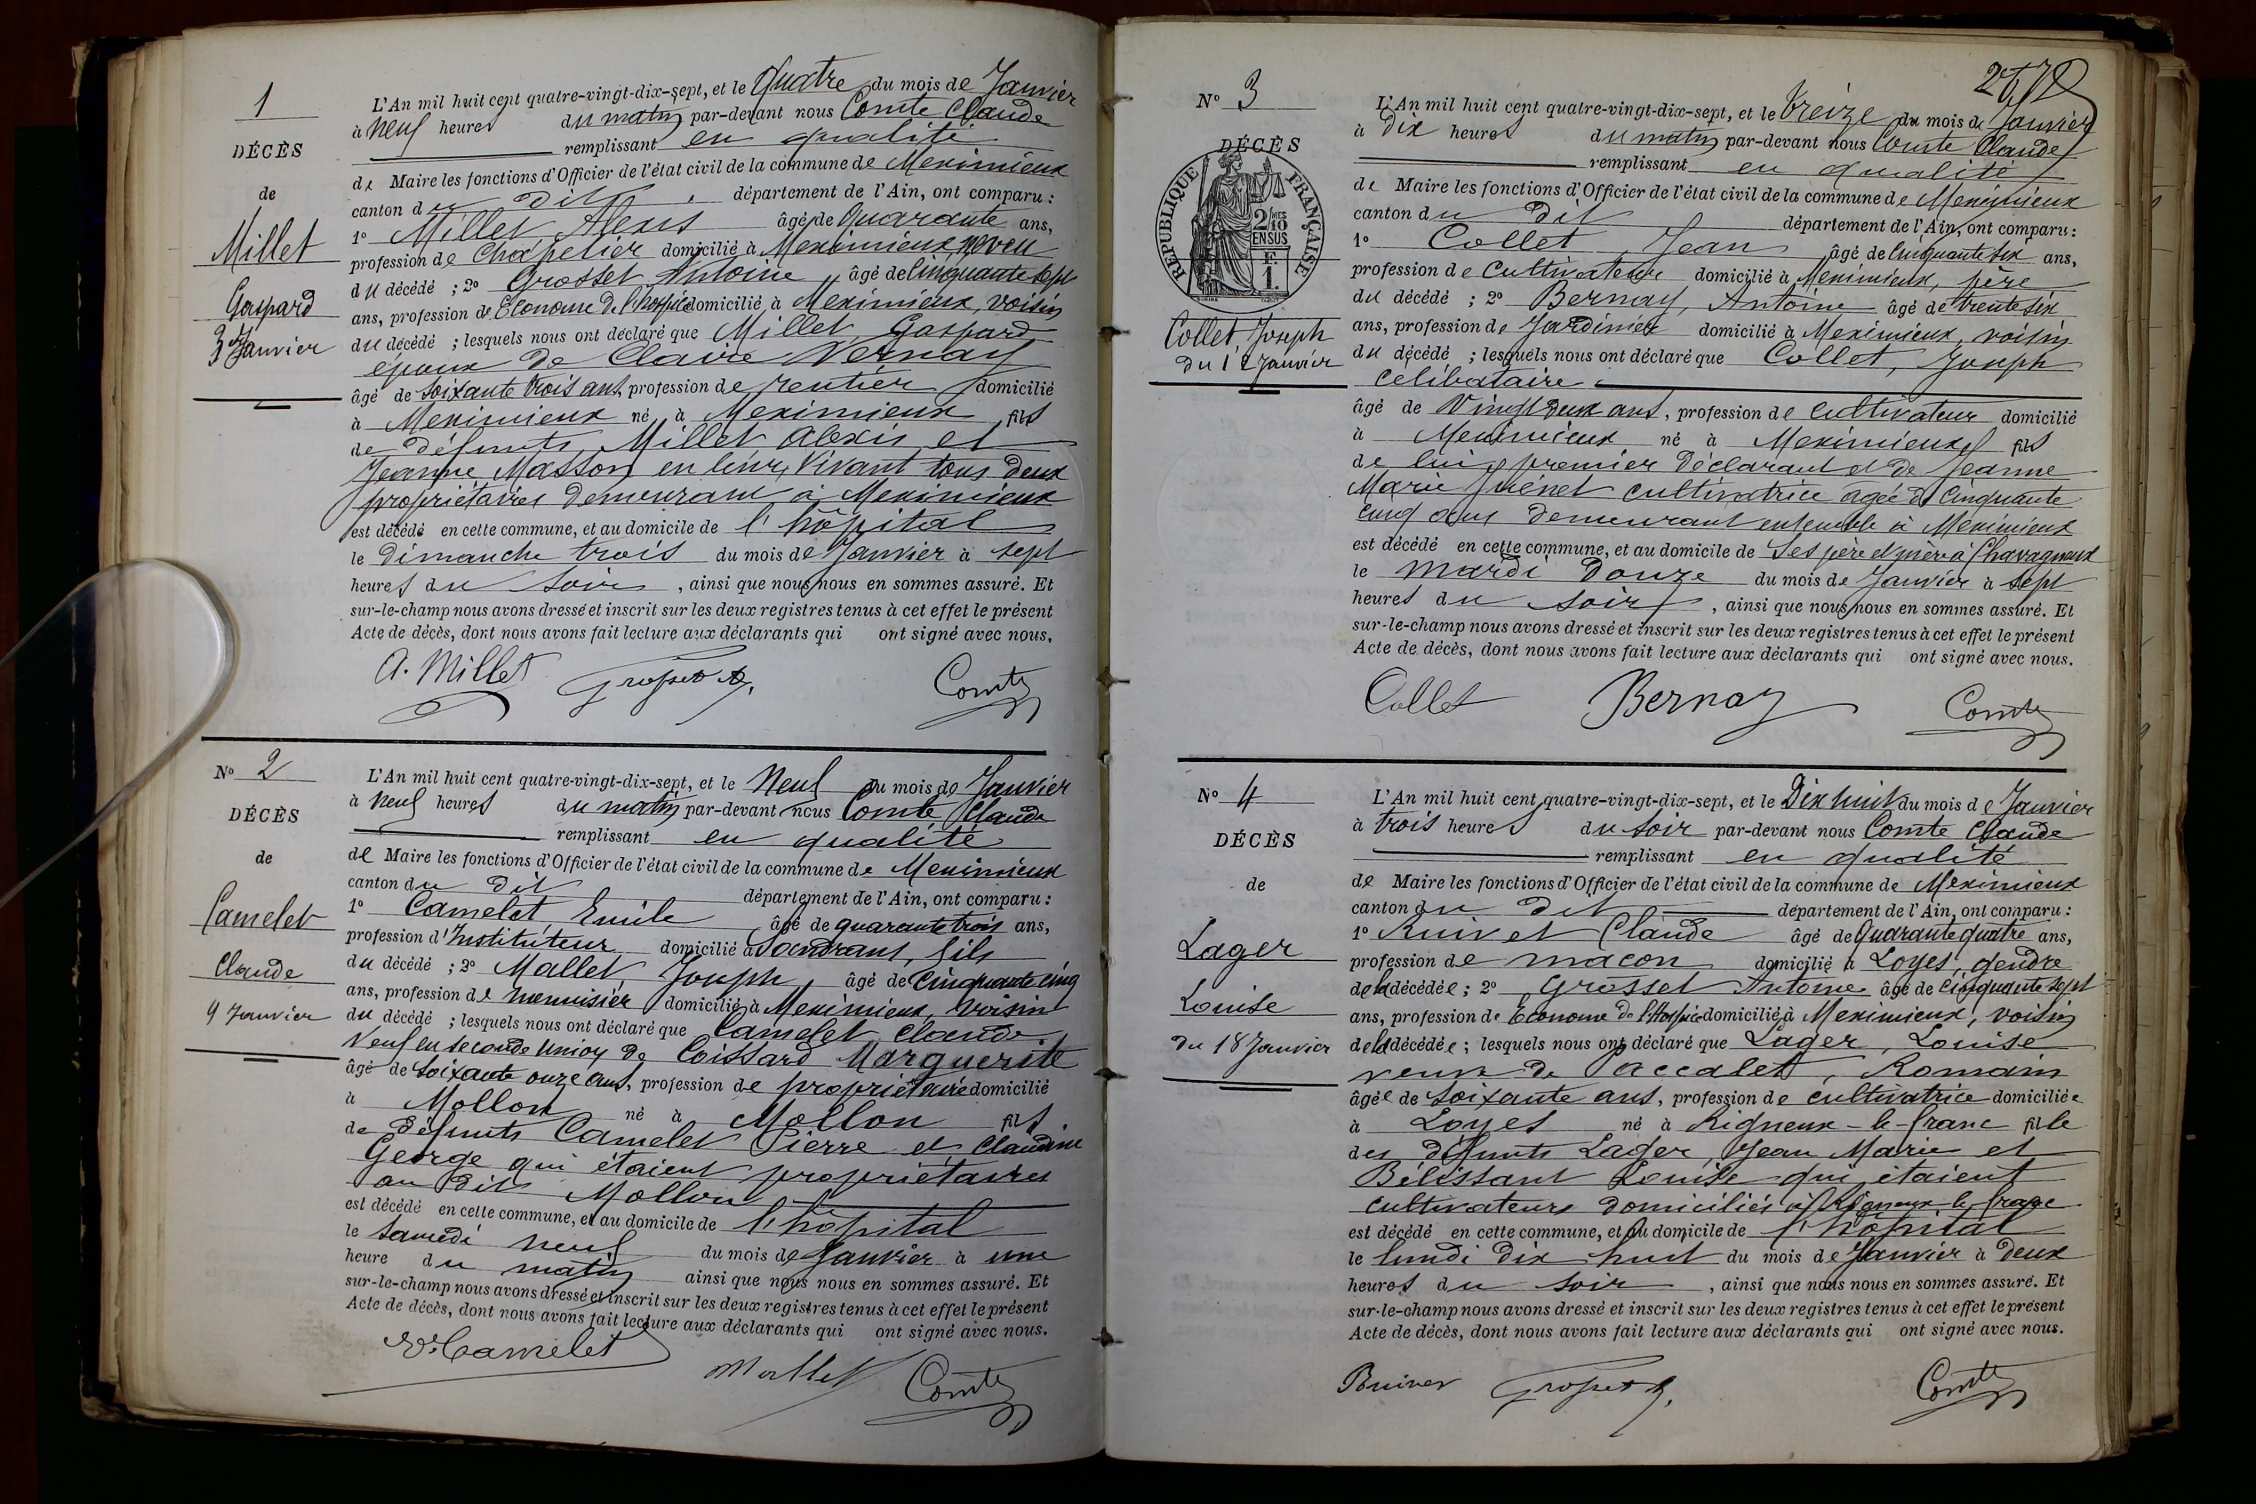 1
DÉCÈS
de
Millet
Gaspard
3 Janvier
L'An mil huit cent quatre-vingt-dix-sept, et le Quatre du mois de Janvier
à Neuf heures du matin par-devant nous Comte Claude
remplissant en qualité
de Maire les fonctions d'Officier de l'état civil de la commune de Meximieux
canton du dit département de l'Ain, ont comparu :
1° Millet Alexis âgé de Quarante ans,
profession de Chapelier domicilié à Meximieux, neveu
du décédé ; 2° Grosset Antoine âgé de Cinquante sept
ans, profession de Econome de l'hospice domicilié à Meximieux, voisin
du décédé ; lesquels nous ont déclaré que Millet Gaspard
époux de Claire Vernay
âgé de Soixante trois ans, profession de rentier domicilié
à Meximieux né à Meximieux fils
de défunts Millet Alexis et
Jeanne Masson en leur vivant tous deux
propriétaires demeurant à Meximieux
est décédé en cette commune, et au domicile de l'hôpital
le dimanche trois du mois de Janvier à sept
heures du soir, ainsi que nous nous en sommes assuré. Et
sur-le-champ nous avons dressé et inscrit sur les deux registres tenus à cet effet le présent
Acte de décès, dont nous avons fait lecture aux déclarants qui ont signé avec nous.
A. Millet Grosset A. Comte
N° 2
DÉCÈS
de
Camelet
Claude
9 Janvier
L'An mil huit cent quatre-vingt-dix-sept, et le Neuf du mois de Janvier
à Neuf heures du matin par-devant nous Comte Claude
remplissant en qualité
de Maire les fonctions d'Officier de l'état civil de la commune de Meximieux
canton du dit département de l'Ain, ont comparu :
1° Camelet Emile âgé de quarante trois ans,
profession d'Instituteur domicilié à Sandrans, fils
du décédé ; 2° Mallet Joseph âgé de Cinquante cinq
ans, profession de menuisier domicilié à Meximieux, voisin
du décédé ; lesquels nous ont déclaré que Camelet Claude
Veuf en seconde union de Coissard Marguerite
âgé de Soixante onze ans, profession de propriétaire domicilié
à Mollon né à Mollon fils
de défunts Camelet Pierre et Claudine
George qui étaient propriétaires
au dit Mollon
est décédé en cette commune, et au domicile de l'hôpital
le Samedi neuf du mois de Janvier à une
heure du matin ainsi que nous nous en sommes assuré. Et
sur-le-champ nous avons dressé et inscrit sur les deux registres tenus à cet effet le présent
Acte de décès, dont nous avons fait lecture aux déclarants qui ont signé avec nous.
E. Camelet Mallet Comte
N° 3
DÉCÈS
RÉPUBLIQUE FRANÇAISE
2/10
EN SUS
F.
1.
Collet, Joseph
du 12 Janvier
L'An mil huit cent quatre-vingt-dix-sept, et le Treize du mois de Janvier
à Dix heures du matin par-devant nous Comte Claude
remplissant en qualité
de Maire les fonctions d'Officier de l'état civil de la commune de Meximieux
canton du dit département de l'Ain, ont comparu :
1° Collet Jean âgé de Cinquante six ans,
profession de Cultivateur domicilié à Meximieux, père
du décédé ; 2° Bernay, Antoine âgé de trente six
ans, profession de Jardinier domicilié à Meximieux, voisin
du décédé ; lesquels nous ont déclaré que Collet, Joseph
Célibataire
âgé de Vingt deux ans, profession de cultivateur domicilié
à Meximieux né à Meximieux fils
de lui premier déclarant et de Jeanne
Marie cultivatrice agée de Cinquante
cinq ans demeurant ensemble à Meximieux
est décédé en cette commune, et au domicile de Ses père et mère à Chavagneux
le Mardi Douze du mois de Janvier à Sept
heures du soir, ainsi que nous nous en sommes assuré. Et
sur-le-champ nous avons dressé et inscrit sur les deux registres tenus à cet effet le présent
Acte de décès, dont nous avons fait lecture aux déclarants qui ont signé avec nous.
Collet Bernay Comte
N° 4
DÉCÈS
de
Lager
Louise
du 18 Janvier
L'An mil huit cent quatre-vingt-dix-sept, et le Dix huit du mois de Janvier
à trois heures du soir par-devant nous Comte Claude
remplissant en qualité
de Maire les fonctions d'Officier de l'état civil de la commune de Meximieux
canton du dit département de l'Ain, ont comparu :
1° Ruivet Claude âgé de Quarante quatre ans,
profession de maçon domicilié à Loyes, gendre
de la décédée ; 2° Grosset Antoine âgé de Cinquante sept
ans, profession de Econome de l'Hospice domicilié à Meximieux, voisin
de la décédée ; lesquels nous ont déclaré que Lager, Louise
veuve de Paccalet, Romain
âgée de Soixante ans, profession de cultivatrice domiciliée
à Loyes né à Rigneux-le-franc fille
des défunts Lager, Jean Marie et
Bélissant Louise qui étaient
cultivateurs domiciliés à Rigneux-le-franc
est décédé en cette commune, et au domicile de l'hôpital
le lundi dix huit du mois de Janvier à deux
heures du soir, ainsi que nous nous en sommes assuré. Et
sur-le-champ nous avons dressé et inscrit sur les deux registres tenus à cet effet le présent
Acte de décès, dont nous avons fait lecture aux déclarants qui ont signé avec nous.
Ruivet Grosset A. Comte